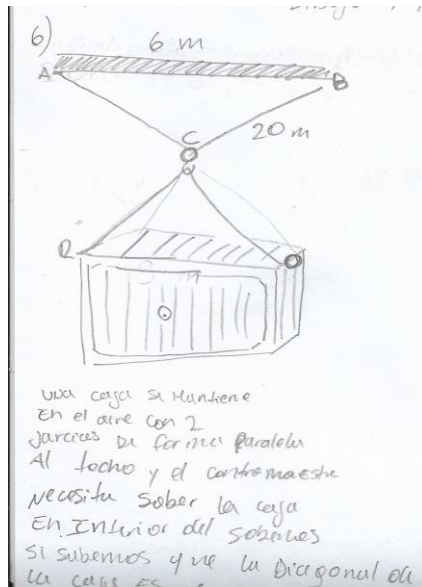 6)
6 m
A
B
C
20 m
una caja se Mantiene
En el aire con 2
Jarcias De forma Paralela
Al techo y el contramaestre
Necesita Saber la caja
En Interior del
Si Sabemos que la Diagonal de
la caja Es